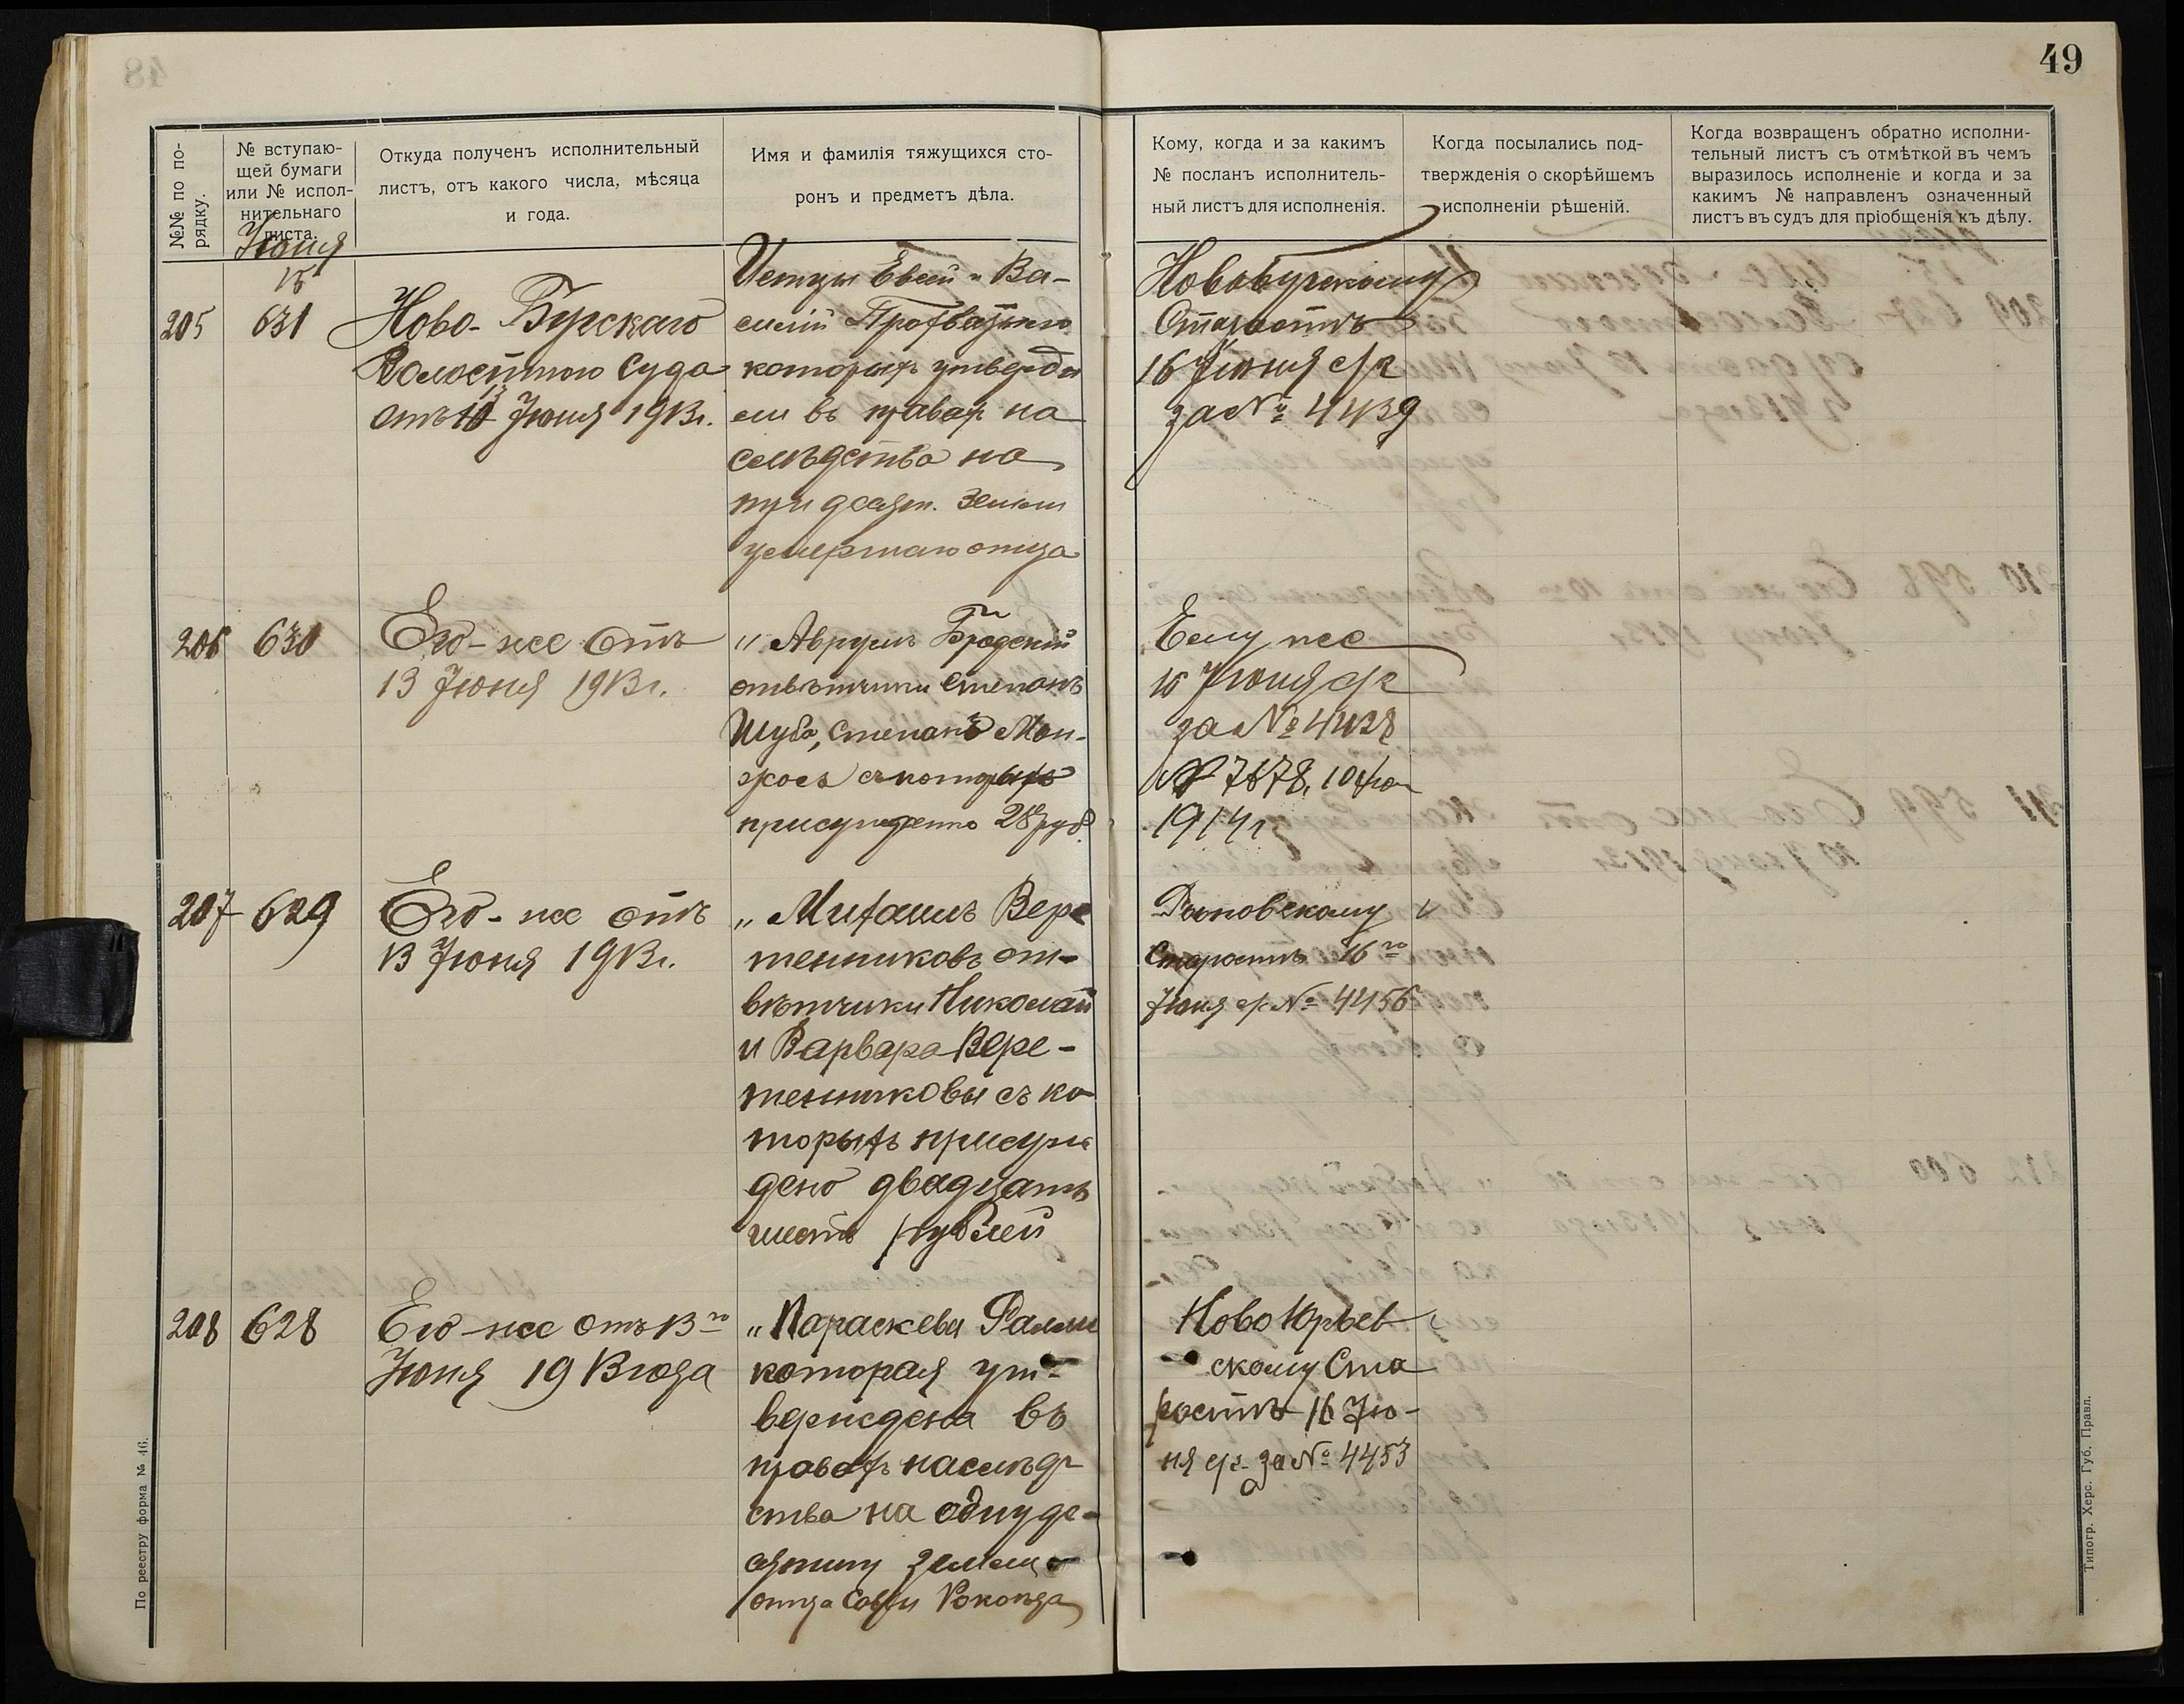 49
№№ по по-
рядку.
№ вступаю-
щей бумаги
или № испол-
нительнаго
листа.
Откуда полученъ исполнительный
листъ, отъ какого числа, мѣсяца
и года.
Имя и фамилія тяжущихся сто-
ронъ и предметъ дѣла.
Кому, когда и за какимъ
№ посланъ исполнитель-
ный листъ для исполненія.
Когда посылались под-
твержденія о скорѣйшемъ
исполненіи рѣшеній.
Когда возвращенъ обратно исполни-
тельный листъ съ отмѣткой въ чемъ
выразилось исполненіе и когда и за
какимъ № направленъ означенный
листъ въ судъ для пріобщенія къ дѣлу.
Іюня
15
205
631
Ново-Бургскаго
Волостного Суда
отъ 13 Іюня 1913г.
Истцы Евсей и Ва-
силій
которых утвержде
ны въ правах на
слѣдства на
три десят. земли
умершаго отца
Новобугскому
Старостѣ
16 Іюня с/г
за № 4439
206
630
Его-же отъ
13 Іюня 1913г.
" Аврумъ Бродскій
отвѣтчики Степанъ
Шуба, Степанъ Мон-
жосъ съ которыхъ
присуждено 28 руб.
Ему же
Іюня с/г
за № 4428
1914г
207
629
Его-же отъ
13 Іюня 1913г.
" Михаилъ Вере
тенниковъ от-
вѣтчики Николай
и Варвара Вере-
тенниковы съ ко
торыхъ присуж
дено двадцать
шесть рублей
Старостѣ 16го
Іюня с/г № 4456
208
628
Его-же отъ 13го
Іюня 1913 года
" Параскева
которая ут-
верждена въ
правахъ наслѣд-
ства на одну де-
сятину земли
отца
НовоЮрьев
скому Ста
ростѣ 16 Ію-
ня с/г за № 4453
По реестру форма № 46.
Типогр. Херс. Губ. Правл.